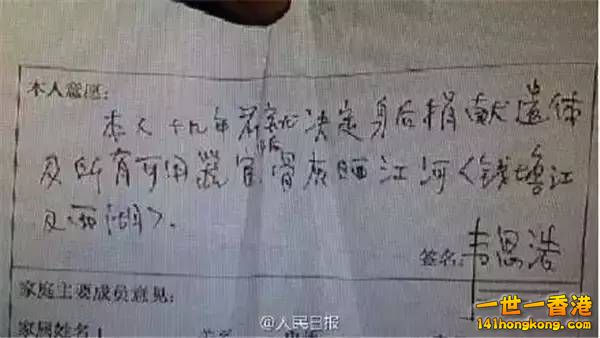 本人意愿:
本人十九年前就决定身后捐献遗体
及所有可用器官后骨灰晒江河《钱塘江
及西湖》.
签名: 韦思浩
家庭主要成员意见:
家属姓名:
@人民日报
一世一香港
141hongkong.com